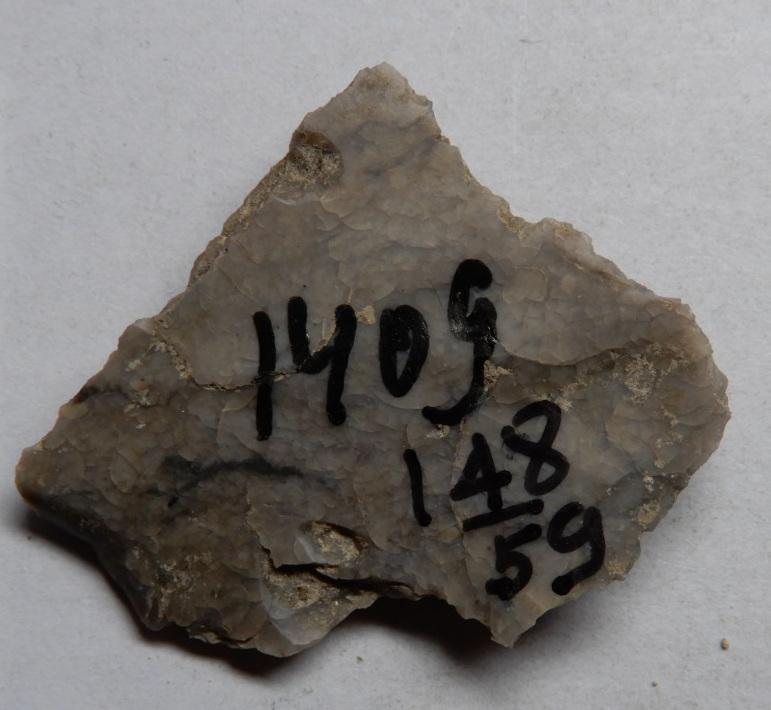 1409
148
59